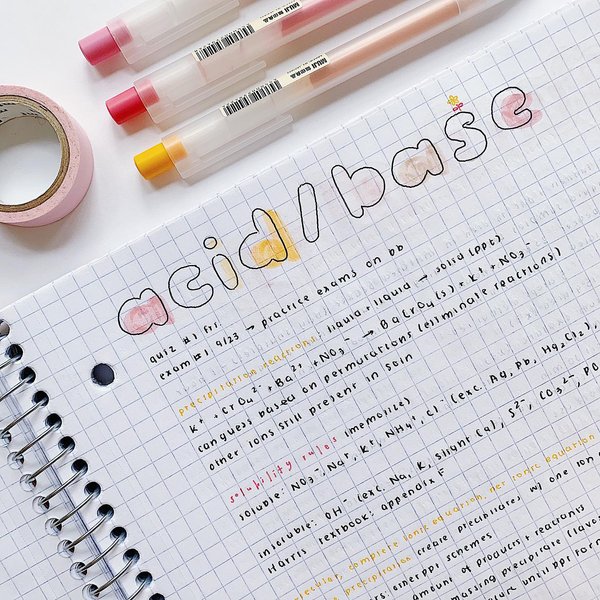 MUJI 無印良品
MUJI 無印良品
acid/base
quiz #1 fri
exam #1 9/23 → practice exams on bb
precipitation reactions: liquid + liquid → solid (ppt)
K⁺ + CrO₄²⁻ + Ba²⁺ + NO₃⁻ → BaCrO₄(s) + K⁺ + NO₃⁻
can guess based on permutations (eliminate reactions)
other ions still present in soln
solubility rules (memorize)
soluble: NO₃⁻, Na⁺, K⁺, NH₄⁺, Cl⁻ (exc. Ag, Pb, Hg₂Cl₂),
insoluble: OH⁻ (exc. Na, K, slight Ca), S²⁻, CO₃²⁻, PO
Harris textbook: appendix F
molecular, complete ionic equation, net ionic equation
precipitation create precipitates w/ one ion
schemes
amount of products + reactants
massing precipitate (favor
until ppt form